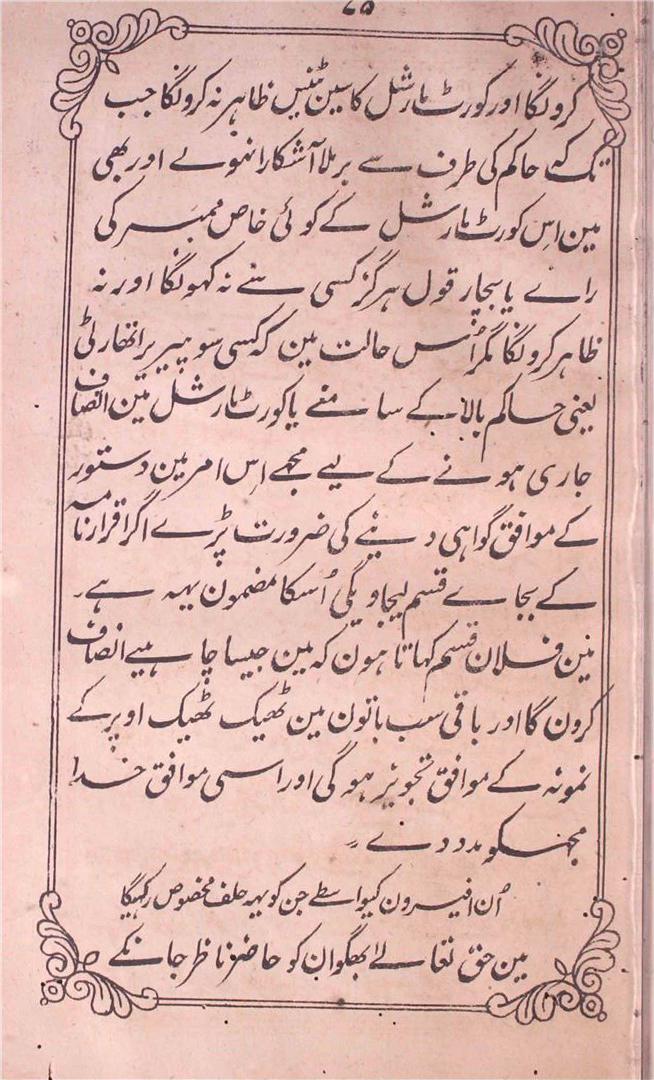 کرونگا اور کورٹ مارشل کا سین ٹنیں ظاہر نہ کرونگا جب
تک کہ حاکم کی طرف سے برملا آشکارا نہولے اور بھی
مین اِس کورٹ مارشل کے کوئی خاص ممبر کی
راے یا بچار قول ہرگز کسی سنے نہ کہونگا اور نہ
ظاہر کرونگا مگر اُس حالت مین کہ کسی سوپیریر اتھارٹی
یعنی حاکم بالا کے سامنے یا کورٹ مارشل مین انصاف
جاری ہونے کے لیے مجھے اِس امر مین دستور
کے موافق گواہی دینے کی ضرورت پڑے اگر اقرارنامہ
کے بجاے قسم لیجاویگی اُسکا مضمون یہہ ہے۔
مین فلان قسم کہاتا ہون کہ مین جیسا چاہیے انصاف
کرون گا اور باقی سب باتون مین ٹھیک ٹھیک اوپر کے
نمونہ کے موافق تجویز ہوگی اور اسی موافق خدا
مجھکو مدد دے ۔
اُن افیسرون کیواسطے جن کو یہہ حلف مخصوص رکہیگا
مین حق تعالے بھگوان کو حاضر ناظر جانکے